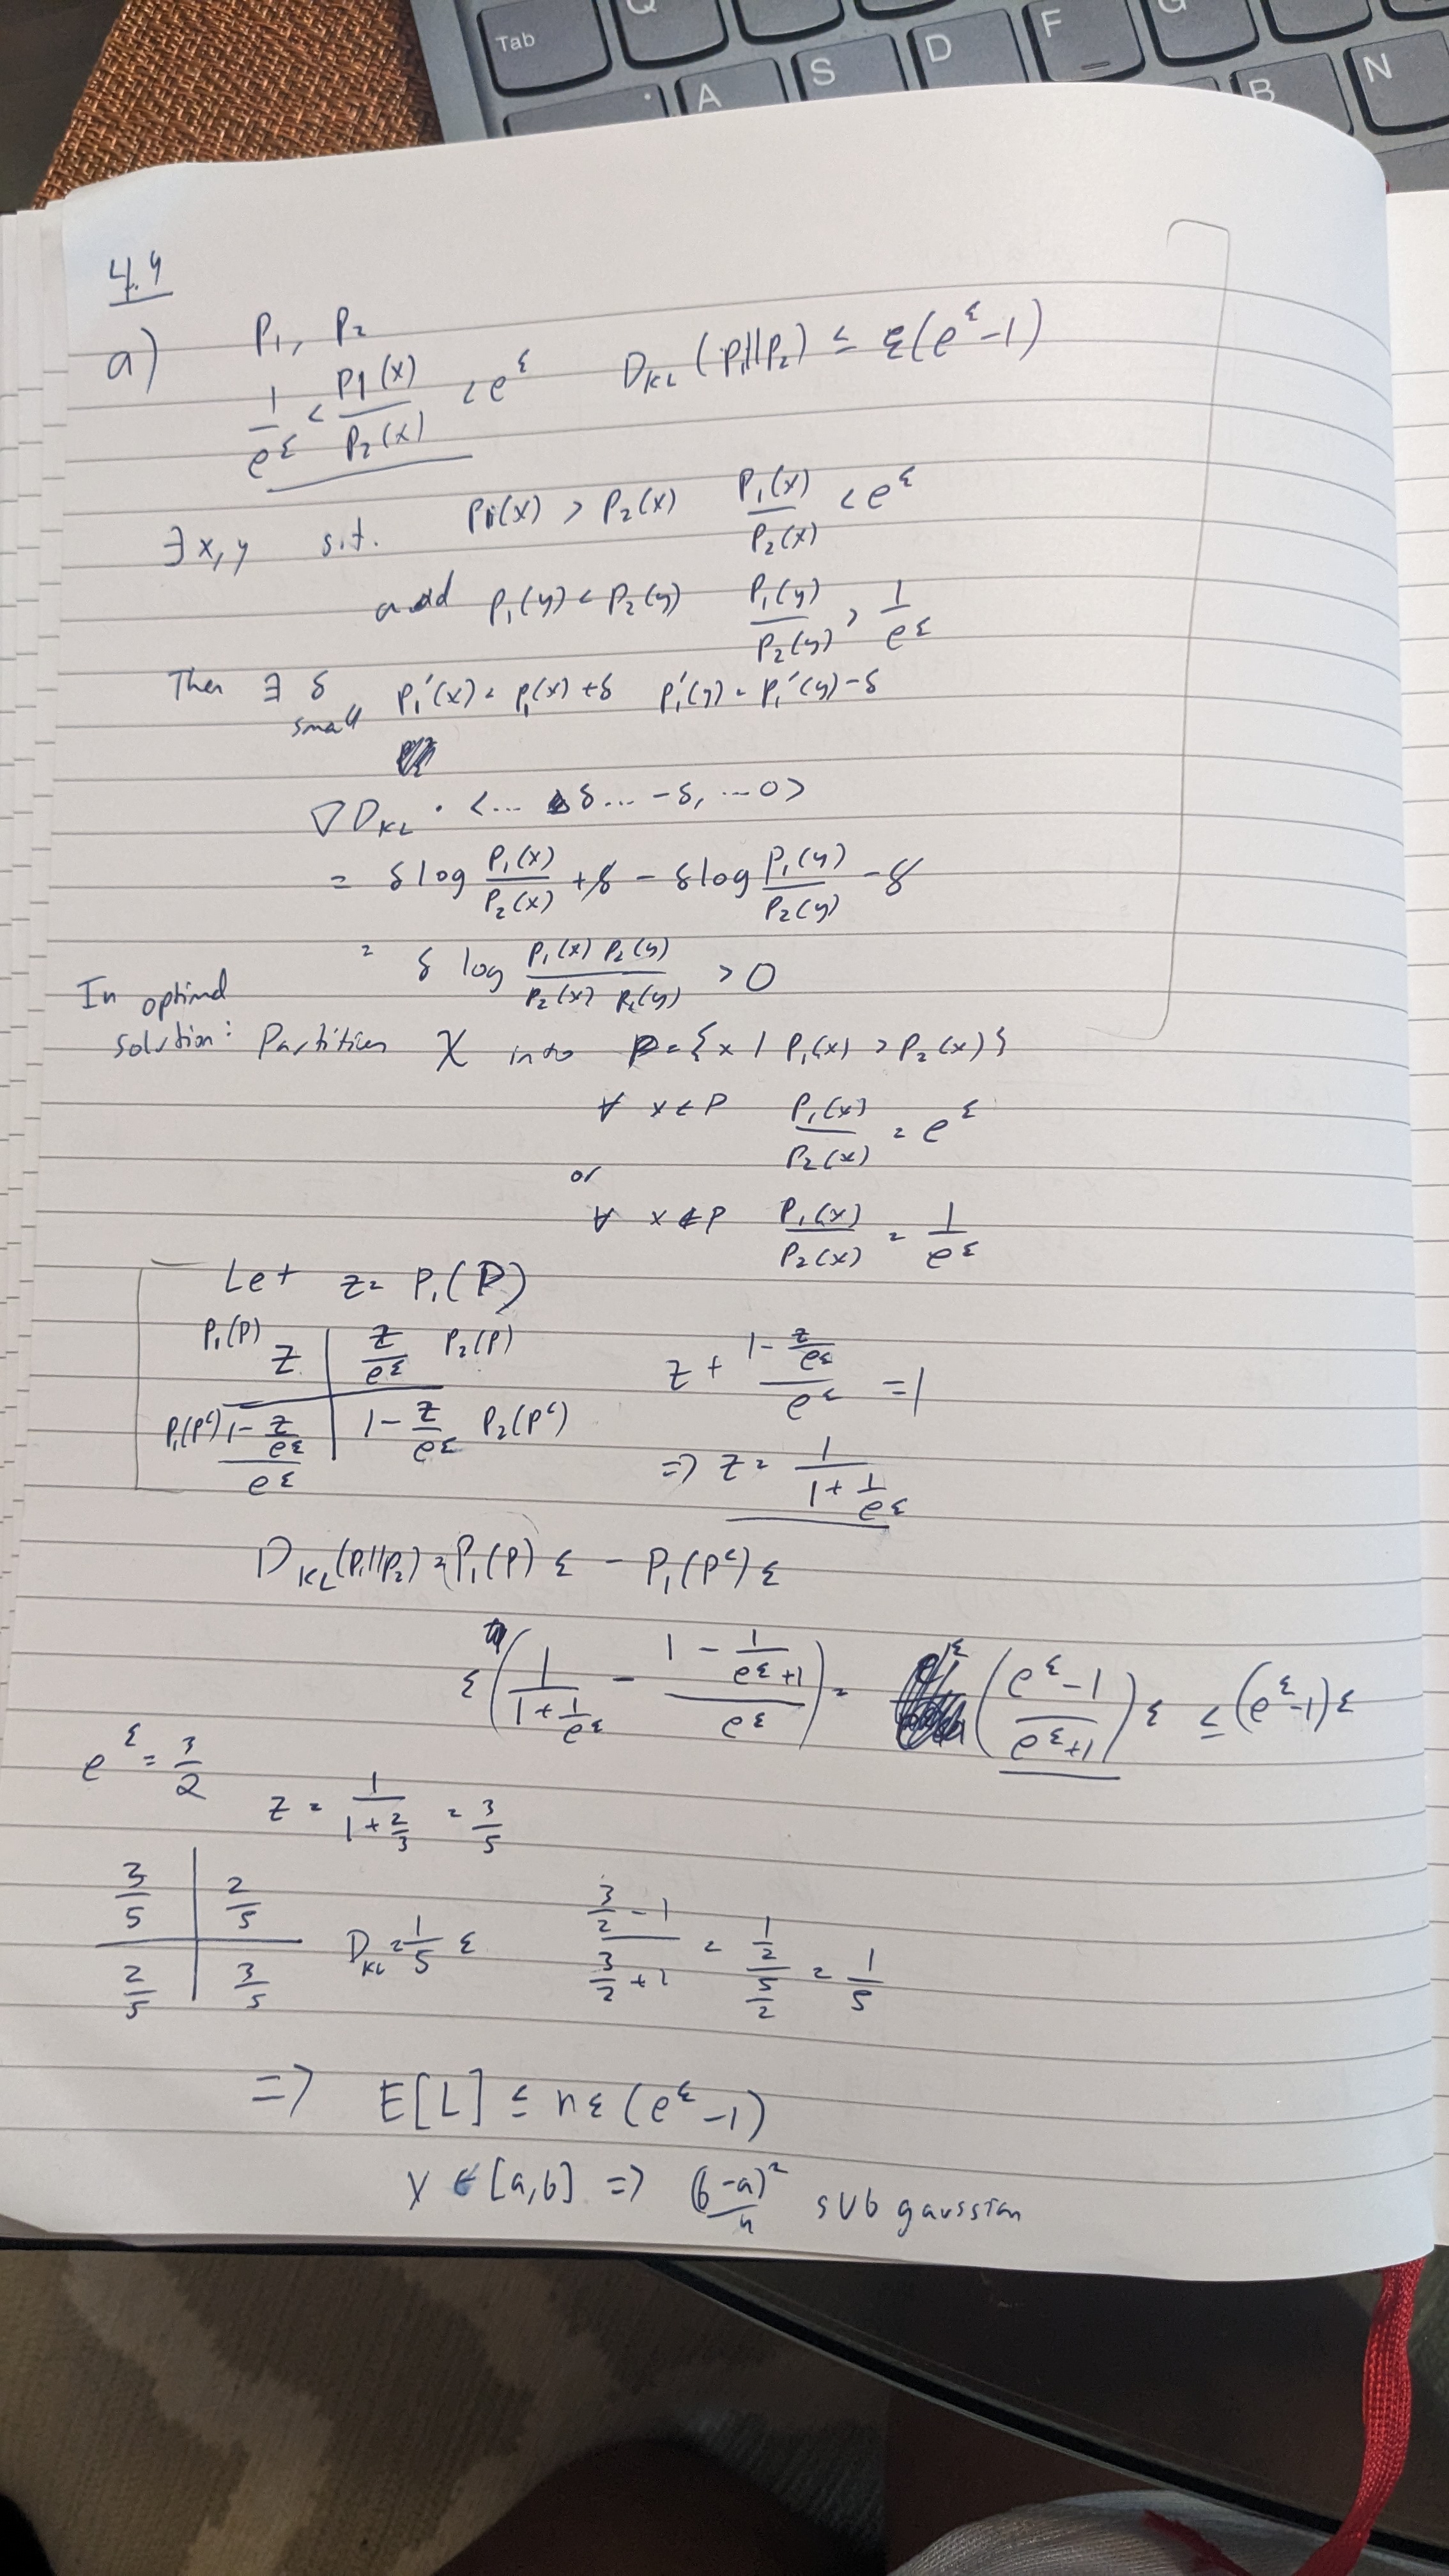 Tab Q A S D F G B N
4.4
a) P₁, P₂
1/e^ε < P1(x)/P₂(x) < e^ε D_KL(P₁||P₂) ≤ ε(e^ε-1)
∃x,y s.t. P1(x) > P₂(x) P₁(x)/P₂(x) < e^ε
and P₁(y) < P₂(y) P₁(y)/P₂(y) > 1/e^ε
Then ∃ δ small P₁'(x) = P₁(x)+δ P₁'(y) = P₁'(y)-δ
∇D_KL · <... δ... -δ, ...0>
= δ log P₁(x)/P₂(x) + δ - δ log P₁(y)/P₂(y) - δ
= δ log P₁(x) P₂(y)/P₂(x) P₁(y) > 0
In optimal
solution: Partition X into P = {x | P₁(x) > P₂(x)}
∀ x∈P P₁(x)/P₂(x) = e^ε
or
∀ x∉P P₁(x)/P₂(x) = 1/e^ε
Let z = P₁(P)
P₁(P) z | z/e^ε P₂(P) z + (1 - z/e^ε)/e^ε = 1
P₁(Pᶜ) (1 - z/e^ε)/e^ε | 1 - z/e^ε P₂(Pᶜ)
=> z = 1/(1 + 1/e^ε)
D_KL(P₁||P₂) = P₁(P) ε - P₁(Pᶜ) ε
ε(1/(1 + 1/e^ε) - (1 - 1/(e^ε+1))/e^ε) = ((e^ε-1)/(e^ε+1)) ε ≤ (e^ε-1)ε
e^ε = 3/2
z = 1/(1 + 2/3) = 3/5
3/5 | 2/5
2/5 | 3/5 D_KL = 1/5 ε (3/2 - 1)/(3/2 + 1) = (1/2)/(5/2) = 1/5
=> E[L] ≤ nε(e^ε-1)
X ∈ [a,b] => (b-a)²/4 sub gaussian